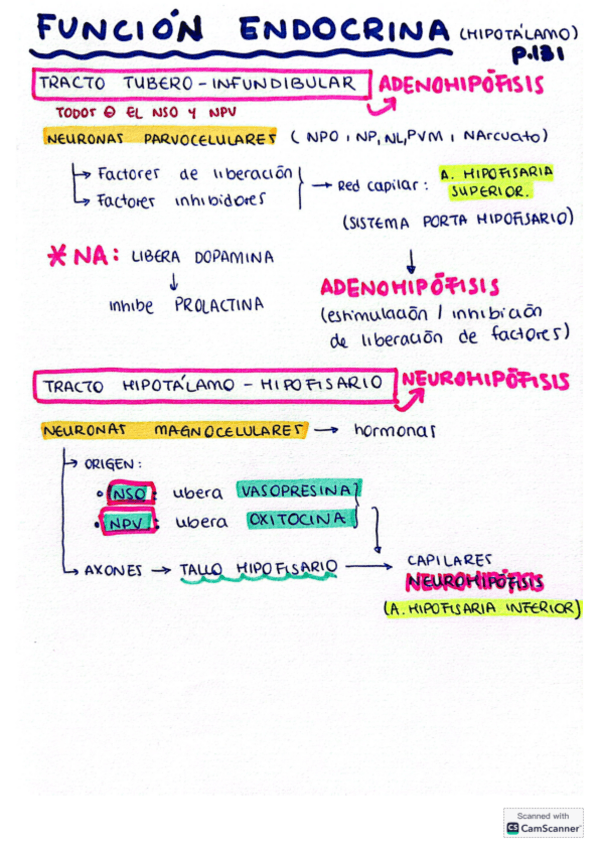 FUNCIÓN ENDOCRINA (HIPOTÁLAMO)
P.131
TRACTO TUBERO-INFUNDIBULAR ADENOHIPÓFISIS
TODOS ⊖ EL NSO y NPV
NEURONAS PARVOCELULARES (NPO, NP, NL, PVM, NArcuato)
Factores de liberación
Factores inhibidores
→ Red capilar: A. HIPOFISARIA SUPERIOR.
(SISTEMA PORTA HIPOFISARIO)
* NA: LIBERA DOPAMINA
↓
inhibe PROLACTINA
↓
ADENOHIPÓFISIS
(estimulación / inhibición
de liberación de factores)
TRACTO HIPOTÁLAMO-HIPOFISARIO NEUROHIPÓFISIS
NEURONAS MAGNOCELULARES → hormonas
ORIGEN:
• NSO: libera VASOPRESINA
• NPV: libera OXITOCINA
AXONES → TALLO HIPOFISARIO → CAPILARES
NEUROHIPÓFISIS
(A. HIPOFISARIA INFERIOR)
Scanned with
CS CamScanner